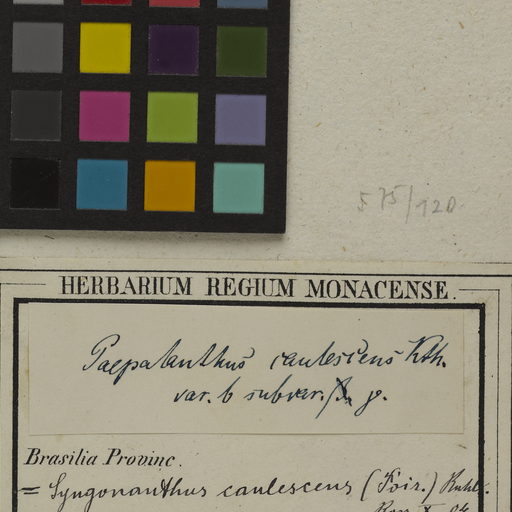 575/120
HERBARIUM REGIUM MONACENSE.
Paepalanthus caulescens Kth.
var. b subvar. g.
Brasilia Provinc.
= Syngonanthus caulescens (Poir.) Ruhl.